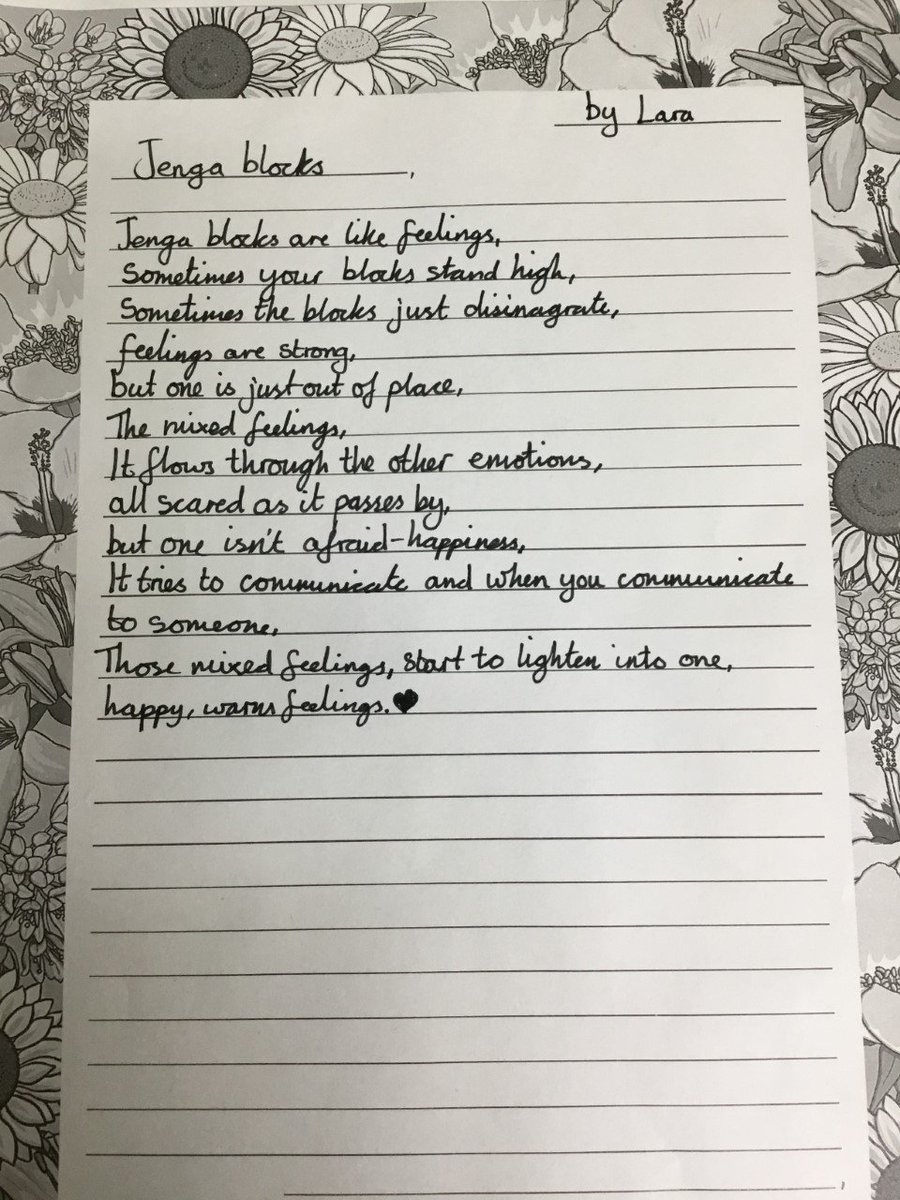 by Lara
Jenga blocks
Jenga blocks are like feelings,
Sometimes your blocks stand high,
Sometimes the blocks just disinagrate,
feelings are strong,
but one is just out of place,
The mixed feelings,
It flows through the other emotions,
all scared as it passes by,
but one isn't afraid-happiness,
It tries to communicate and when you communicate
to someone,
Those mixed feelings, start to lighten into one,
happy, warm feelings.♥